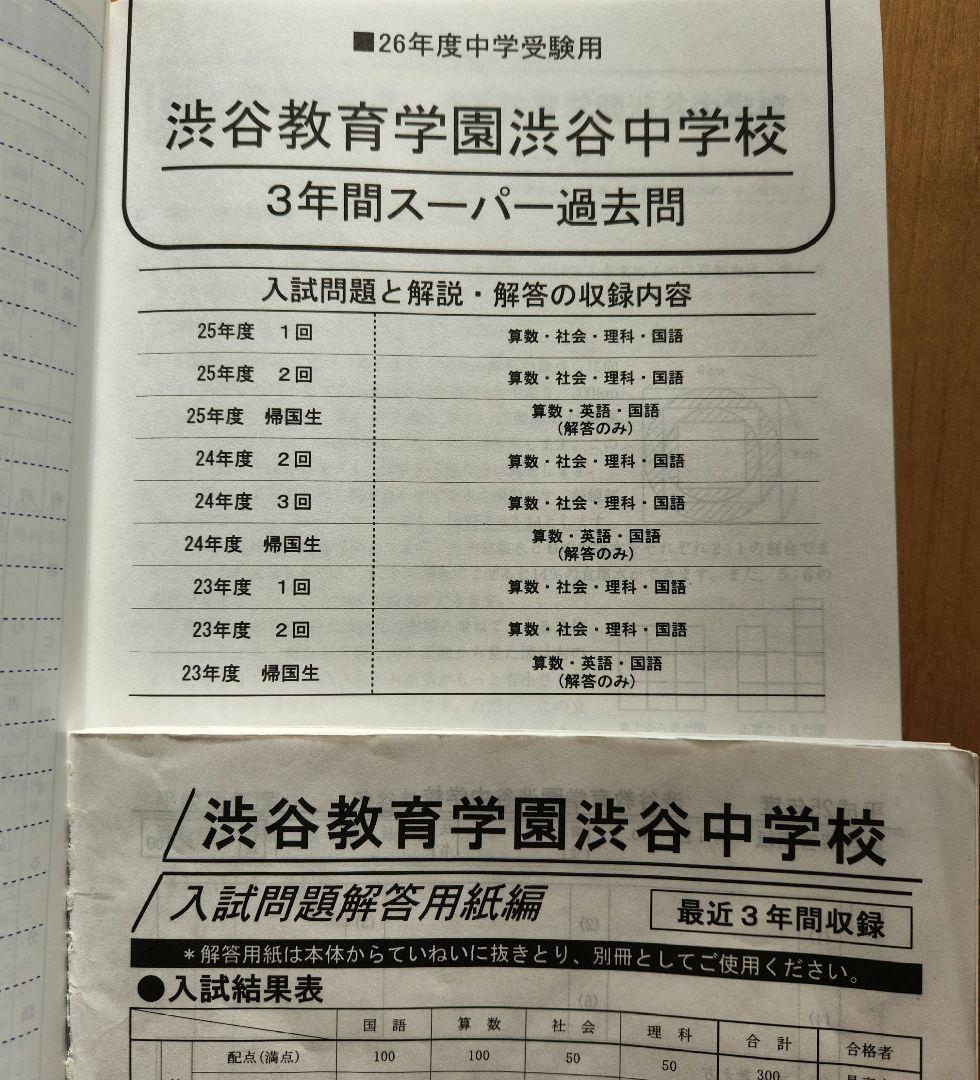 ■26年度中学受験用
渋谷教育学園渋谷中学校
3年間スーパー過去問
入試問題と解説・解答の収録内容
25年度 1回 算数・社会・理科・国語
25年度 2回 算数・社会・理科・国語
25年度 帰国生 算数・英語・国語
(解答のみ)
24年度 2回 算数・社会・理科・国語
24年度 3回 算数・社会・理科・国語
24年度 帰国生 算数・英語・国語
(解答のみ)
23年度 1回 算数・社会・理科・国語
23年度 2回 算数・社会・理科・国語
23年度 帰国生 算数・英語・国語
(解答のみ)
渋谷教育学園渋谷中学校
入試問題解答用紙編 最近3年間収録
*解答用紙は本体からていねいに抜きとり、別冊としてご使用ください。
●入試結果表
国語 算数 社会 理科 合計 合格者
配点(満点) 100 100 50 50 300